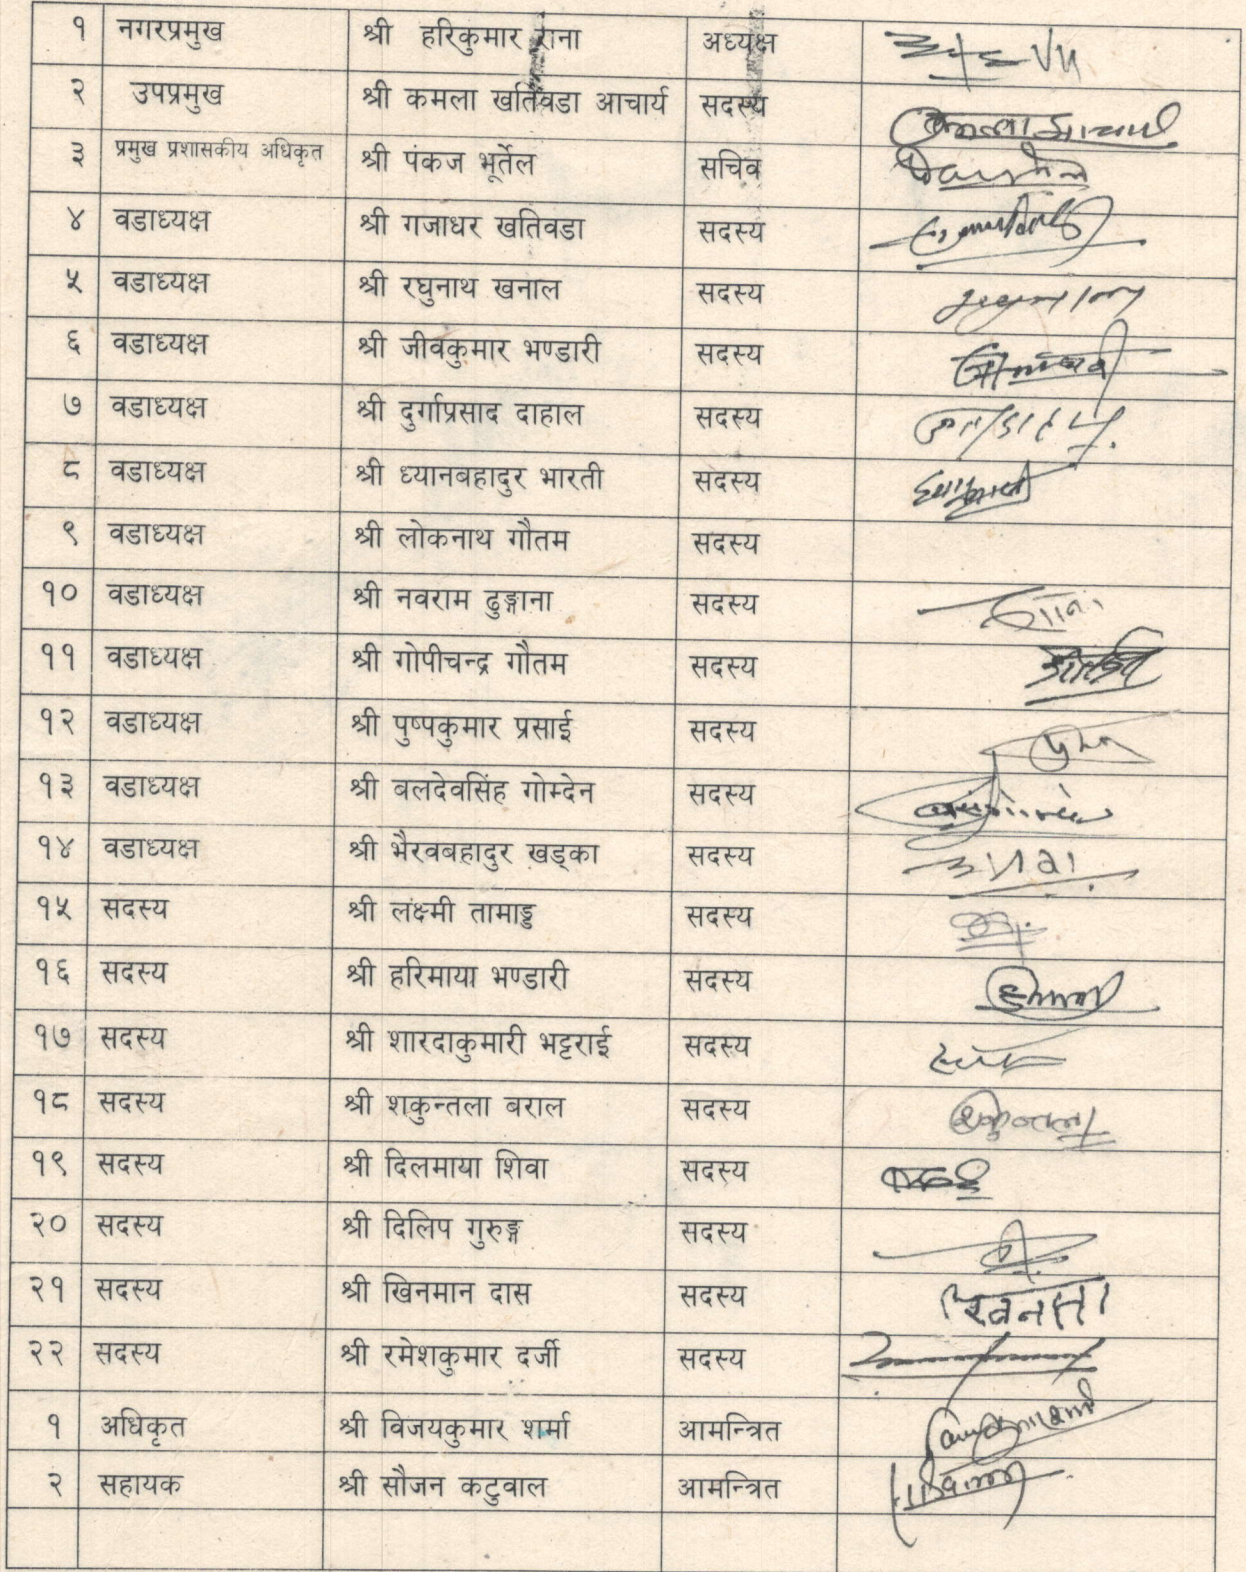 १ नगरप्रमुख श्री हरिकुमार राना अध्यक्ष
२ उपप्रमुख श्री कमला खतिवडा आचार्य सदस्य
३ प्रमुख प्रशासकीय अधिकृत श्री पंकज भूर्तेल सचिव
४ वडाध्यक्ष श्री गजाधर खतिवडा सदस्य
५ वडाध्यक्ष श्री रघुनाथ खनाल सदस्य
६ वडाध्यक्ष श्री जीवकुमार भण्डारी सदस्य
७ वडाध्यक्ष श्री दुर्गाप्रसाद दाहाल सदस्य
८ वडाध्यक्ष श्री ध्यानबहादुर भारती सदस्य
९ वडाध्यक्ष श्री लोकनाथ गौतम सदस्य
१० वडाध्यक्ष श्री नवराम ढुङ्गाना सदस्य
११ वडाध्यक्ष श्री गोपीचन्द्र गौतम सदस्य
१२ वडाध्यक्ष श्री पुष्पकुमार प्रसाई सदस्य
१३ वडाध्यक्ष श्री बलदेवसिंह गोम्देन सदस्य
१४ वडाध्यक्ष श्री भैरवबहादुर खड्का सदस्य
१५ सदस्य श्री लक्ष्मी तामाङ्ग सदस्य
१६ सदस्य श्री हरिमाया भण्डारी सदस्य
१७ सदस्य श्री शारदाकुमारी भट्टराई सदस्य
१८ सदस्य श्री शकुन्तला बराल सदस्य शकुन्तला
१९ सदस्य श्री दिलमाया शिवा सदस्य
२० सदस्य श्री दिलिप गुरुङ्ग सदस्य
२१ सदस्य श्री खिनमान दास सदस्य
२२ सदस्य श्री रमेशकुमार दर्जी सदस्य
१ अधिकृत श्री विजयकुमार शर्मा आमन्त्रित
२ सहायक श्री सौजन कटुवाल आमन्त्रित